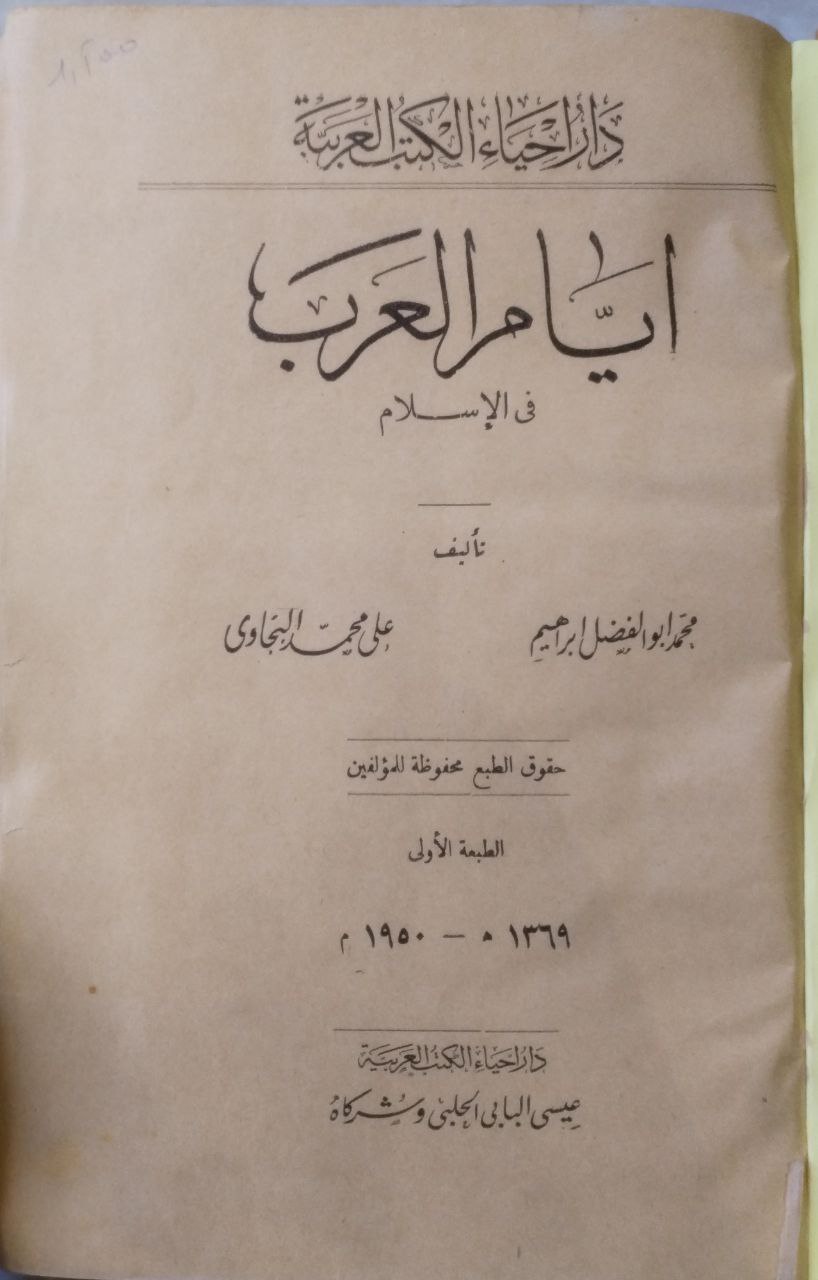 ١,٢٠٠
دار احياء الكتب العربية
ايام العرب
فى الإسلام
تأليف
محمد ابو الفضل ابراهيم
على محمد البجاوى
حقوق الطبع محفوظة للمؤلفين
الطبعة الأولى
١٣٦٩ ه — ١٩٥٠ م
دار احياء الكتب العربية
عيسى البابى الحلبى وشركاه